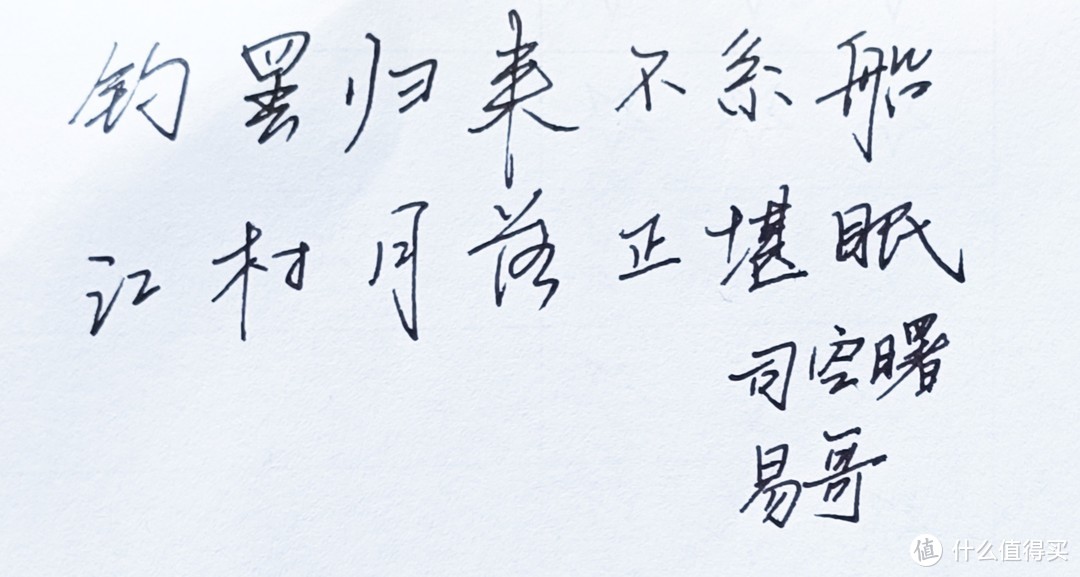 钓罢归来不系船
江村月落正堪眠
司空曙
易哥
值 什么值得买